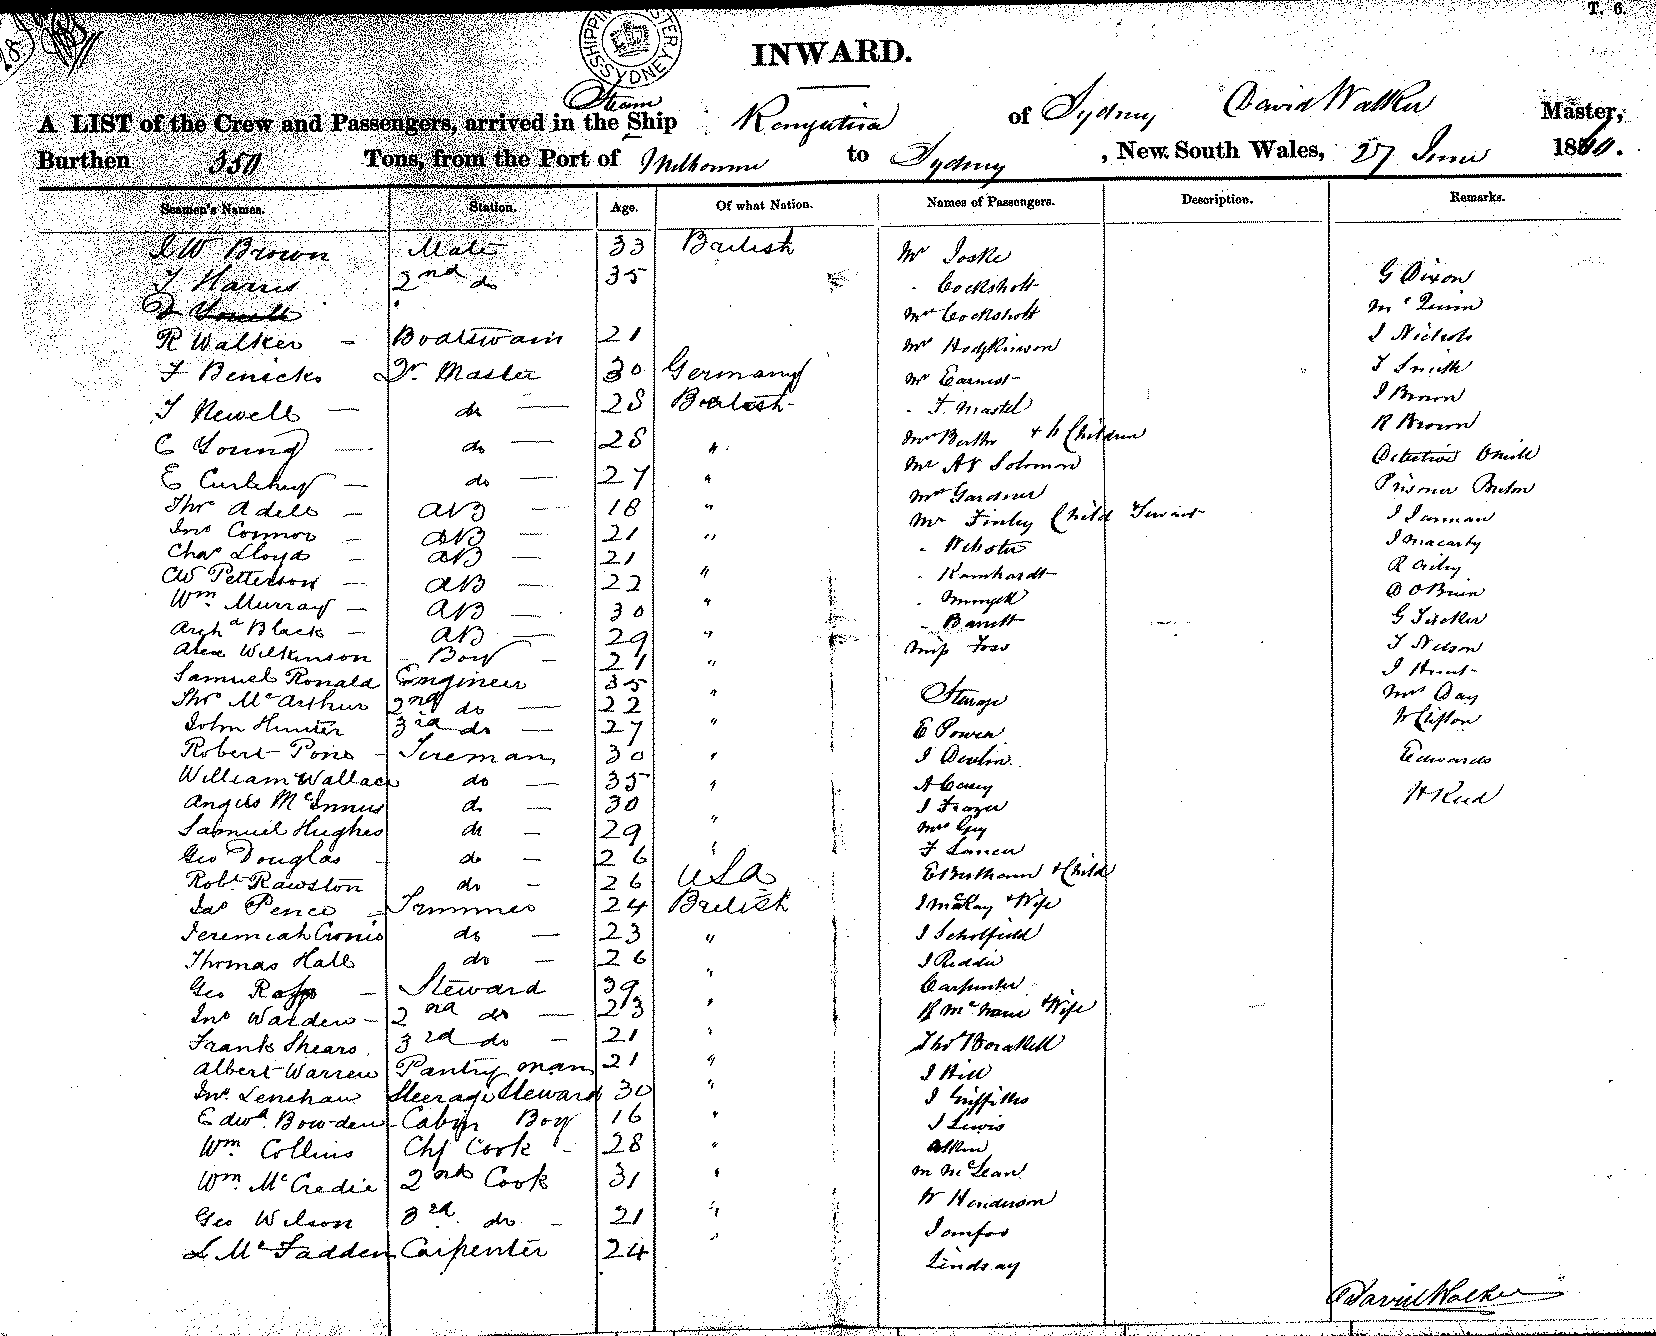 T. 6.
SHIPPING MASTER SYDNEY
INWARD.
Steam
A LIST of the Crew and Passengers, arrived in the Ship of Sydney David Walker Master,
Burthen 350 Tons, from the Port of Melbourne to Sydney, New South Wales, 27 June 18
Seamen's Names. Station. Age. Of what Nation. Names of Passengers. Description. Remarks.
J W Brown Mate 33 British Mr Joske
T Harris 2nd do 35 Cockshott G Dixon
Mrs Cockshott Mc Quinn
R Walker Boatswain 21 Mr Hodgkinson J Nichols
F Benicke Qr. Master 30 Germany Mr Earnest T Smith
T Newell do 28 British F. Martel J Brown
C Young do 28 " + Children R Brown
E do 27 " Mr Solomon Detective
Thos Adells AB 18 " Mrs Gardner Prisoner
Jno Connor AB 21 " Mr Finley Child Servant J Jarman
Chas Lloyd AB 21 Webster J Macarty
CW Petterson AB 22 " R
Wm Murray AB 30 " D OBrien
Archd Black AB 29 " Barrett G Tucker
Alex Wilkinson Boy 21 " Miss Foss T Nelson
Samuel Ronald Engineer 35 J Hunt
Thos McArthur 2nd do 22 " Steerage Mrs Day
John Hunter 3rd do 27 " E Power W Clifton
Robert Fireman 30 " J Devlin Edwards
William Wallace do 35 " A Carey H Reed
Angus McInnus do 30 J Frazer
Samuel Hughes do 29 " Mrs Guy
Geo Douglas do 26 " F
Robt Rawston do 26 USA + Child
Jas Pence Trimmer 24 British J McKay + Wife
Jeremiah Cronin do 23 " J Scholfield
Thomas Hall do 26 " J Reddie
Geo Steward 39 Carpenter
Jno Warden 2nd do 23 " + Wife
Frank Shears 3rd do 21 " Thos
Albert Warren Pantry man 21 " J Hill
Jno Lenehan Steerage Steward 30 " J Griffiths
Edwd Bowden Cabin Boy 16 " J Lewis
Wm Collins Chf Cook 28 " Atkin
Wm McCredie 2nd Cook 31 " M McLean
Geo Wilson 3rd do 21 " W Henderson
L McFadden Carpenter 24 "
Lindsay
David Walker